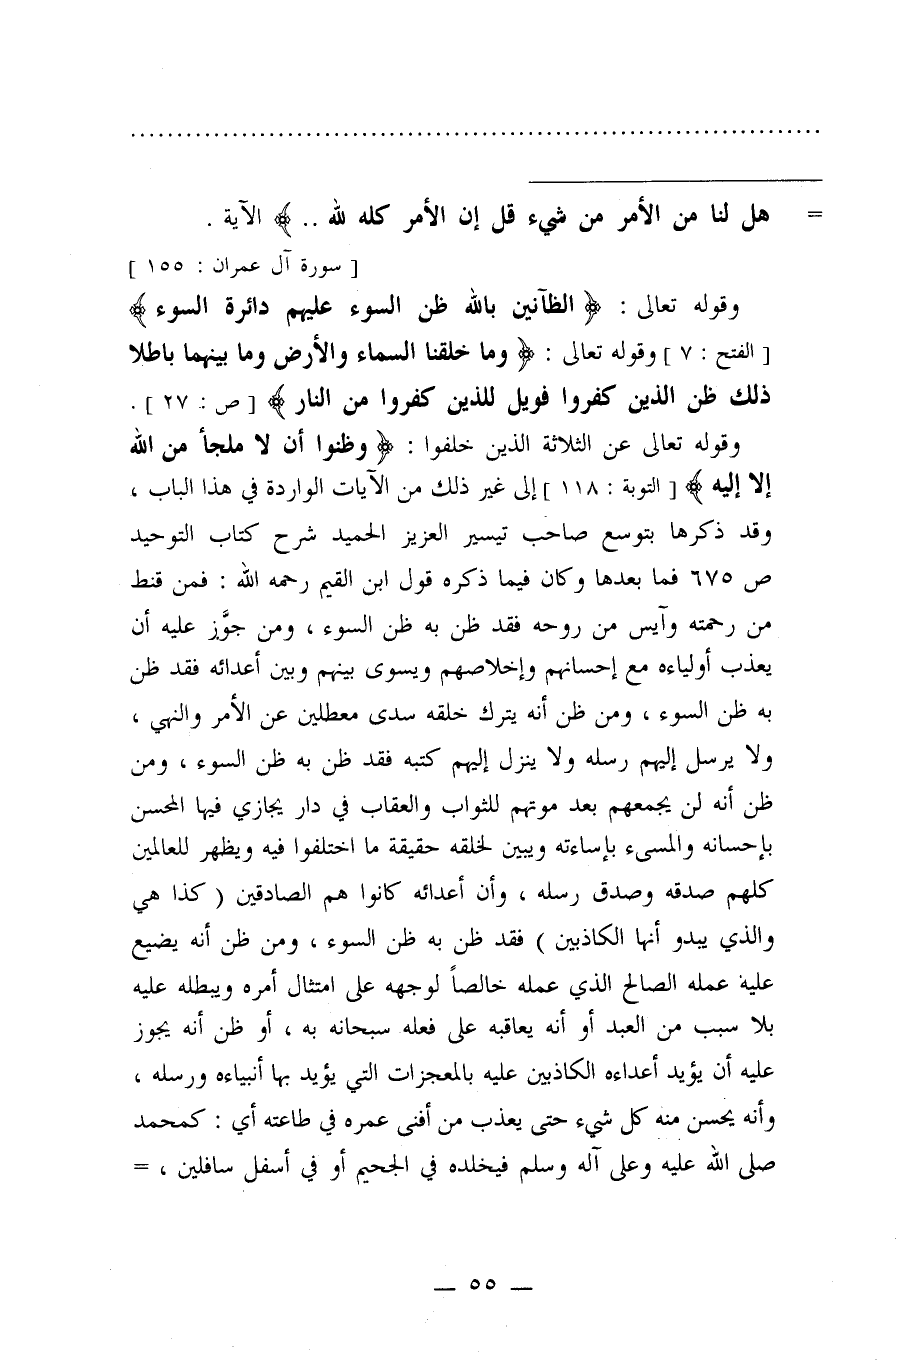 = هل لنا من الأمر من شيء قل إن الأمر كله لله .. ﴾ الآية .
[ سورة آل عمران : ١٥٥ ]
وقوله تعالى : ﴿ الظآنين بالله ظن السوء عليهم دائرة السوء ﴾
[ الفتح : ٧ ] وقوله تعالى : ﴿ وما خلقنا السماء والأرض وما بينهما باطلا
ذلك ظن الذين كفروا فويل للذين كفروا من النار ﴾ [ ص : ٢٧ ] .
وقوله تعالى عن الثلاثة الذين خلفوا : ﴿ وظنوا أن لا ملجأ من الله
إلا إليه ﴾ [ التوبة : ١١٨ ] إلى غير ذلك من الآيات الواردة في هذا الباب ،
وقد ذكرها بتوسع صاحب تيسير العزيز الحميد شرح كتاب التوحيد
ص ٦٧٥ فما بعدها وكان فيما ذكره قول ابن القيم رحمه الله : فمن قنط
من رحمته وآيس من روحه فقد ظن به ظن السوء ، ومن جوَّز عليه أن
يعذب أولياءه مع إحسانهم وإخلاصهم ويسوى بينهم وبين أعدائه فقد ظن
به ظن السوء ، ومن ظن أنه يترك خلقه سدى معطلين عن الأمر والنهي ،
ولا يرسل إليهم رسله ولا ينزل إليهم كتبه فقد ظن به ظن السوء ، ومن
ظن أنه لن يجمعهم بعد موتهم للثواب والعقاب في دار يجازي فيها المحسن
بإحسانه والمسىء بإساءته ويبين لخلقه حقيقة ما اختلفوا فيه ويظهر للعالمين
كلهم صدقه وصدق رسله ، وأن أعدائه كانوا هم الصادقين ( كذا هي
والذي يبدو أنها الكاذبين ) فقد ظن به ظن السوء ، ومن ظن أنه يضيع
عليه عمله الصالح الذي عمله خالصاً لوجهه على امتثال أمره ويبطله عليه
بلا سبب من العبد أو أنه يعاقبه على فعله سبحانه به ، أو ظن أنه يجوز
عليه أن يؤيد أعداءه الكاذبين عليه بالمعجزات التي يؤيد بها أنبياءه ورسله ،
وأنه يحسن منه كل شيء حتى يعذب من أفنى عمره في طاعته أي : كمحمد
صلى الله عليه وعلى آله وسلم فيخلده في الجحيم أو في أسفل سافلين ، =
— ٥٥ —